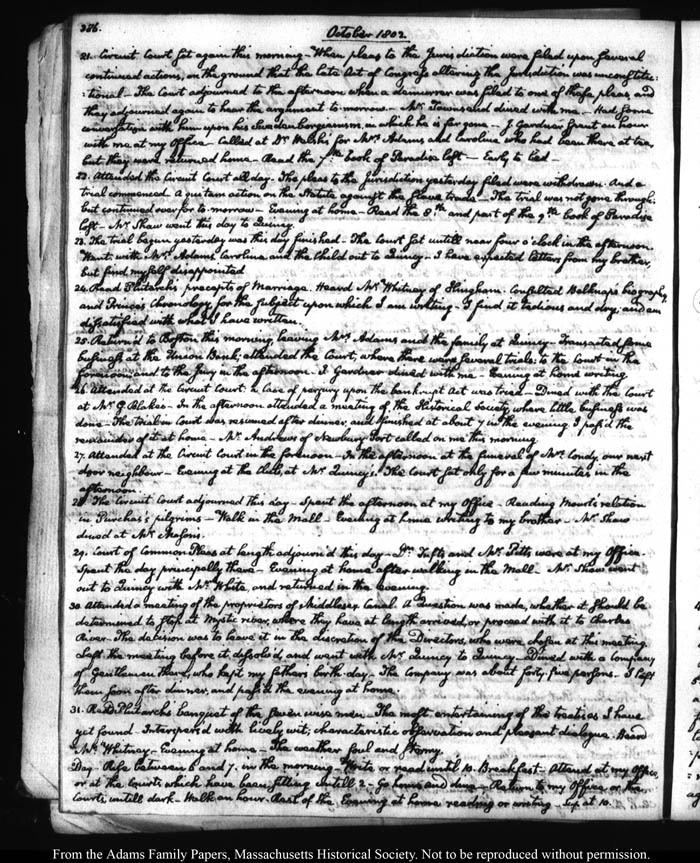 306.
October 1802.
21. Circuit Court sat again this morning – When pleas to the Jurisdiction were filed upon several
continued actions, on the ground that the late Act of Congress altering the Jurisdiction was unconstitu-
:tional – The Court adjourned to the afternoon when a demurrer was filed to one of these pleas, and
they adjourned again to hear the argument to-morrow. – Mr. Townsend dined with me – Had some
conversation with him upon his Swedenborgianism, in which he is far gone – J. Gardner spent an hour
with me at my Office – Called at Dr. Welsh's for Mrs. Adams and Caroline who had been there at tea,
but they were returned home – Read the 7th. book of Paradise lost – Early to bed –
22. Attended the Circuit Court all day – The pleas to the Jurisdiction yesterday filed were withdrawn – And a
trial commenced. A qui tam action, on the Statute against the slave trade – The trial was not gone through:
but continued over for to-morrow – Evening at home – Read the 8th. and part of the 9th. book of Paradise
lost – Mr. Shaw went this day to Quincy.
23. The trial begun yesterday was this day finished – The Court sat untill near four o'clock in the afternoon.
Went with Mrs. Adams, Caroline and the child out to Quincy – I have expected letters from my brother,
but find myself disappointed
24. Read Plutarch's precepts of Marriage. Heard Mr. Whitney of Hingham. Consulted Belknap's biography,
and Prince's Chronology, for the subject upon which I am writing – I find it tedious and dry, and am
dissatisfied with what I have written.
25. Return'd to Boston this morning, leaving Mrs. Adams and the family at Quincy – Transacted some
business at the Union Bank; attended the Court, where there were several trials; to the Court in the
forenoon and to the Jury in the afternoon – J. Gardner dined with me – Evening at home writing.
26. Attended at the Circuit Court: a case of perjury upon the bankrupt Act was tried – Dined with the Court
at Mr. G. Blake's – In the afternoon attended a meeting of the Historical Society, where little business was
done – The trial in Court was resumed after dinner, and finished at about 7 in the evening I pass'd the
remainder of it at home – Mr. Andrews of Newbury Port called on me this morning
27. Attended at the Circuit Court in the forenoon – In the afternoon at the funeral of Mrs. Condy, our next
door neighbour – Evening at the Club, at Mr. Quincy's. The Court sat only for a few minutes in the
afternoon.
28. The Circuit Court adjourned this day – Spent the afternoon at my Office – Reading Mourt's relation
in Purchas's pilgrims – Walk in the Mall – Evening at home writing to my brother – Mr. Shaw
dined at Mr. Mason's.
29. Court of Common Pleas at length adjourn'd this day – Dr. Tufts and Mr. Pitts were at my Office –
Spent the day principally there – Evening at home after walking in the Mall – Mr. Shaw went
out to Quincy with Mr. White, and returned in the evening.
30. Attended a meeting of the proprietors of Middlesex Canal. A Question was made, whether it should be
determined to stop at Mystic river, where they have at length arrived, or proceed with it to Charles
River – The decision was to leave it in the discretion of the Directors, who were chosen at this meeting
I left the meeting before it dissolv'd, and went with Mr. Quincy to Quincy – Dined with a company
of Gentlemen there, who kept my father's birth-day – The company was about forty-five persons. I left
them soon after dinner, and pass'd the evening at home.
31. Read Plutarch's banquet of the seven wise men – The most entertaining of the treatises I have
yet found – Interspers'd with lively wit; characteristic observation and pleasant dialogue. Heard
Mr. Whitney – Evening at home – The weather foul and stormy.
Day. Rise between 6 and 7. in the morning – Write or read until 10. Breakfast – Attend at my Office,
or at the Courts which have been sitting untill 2 – Go home and dine – Return to my Office or the
Courts, untill dark – Walk an hour. Rest of the Evening at home reading or writing – Sup at 10.
From the Adams Family Papers, Massachusetts Historical Society. Not to be reproduced without permission.